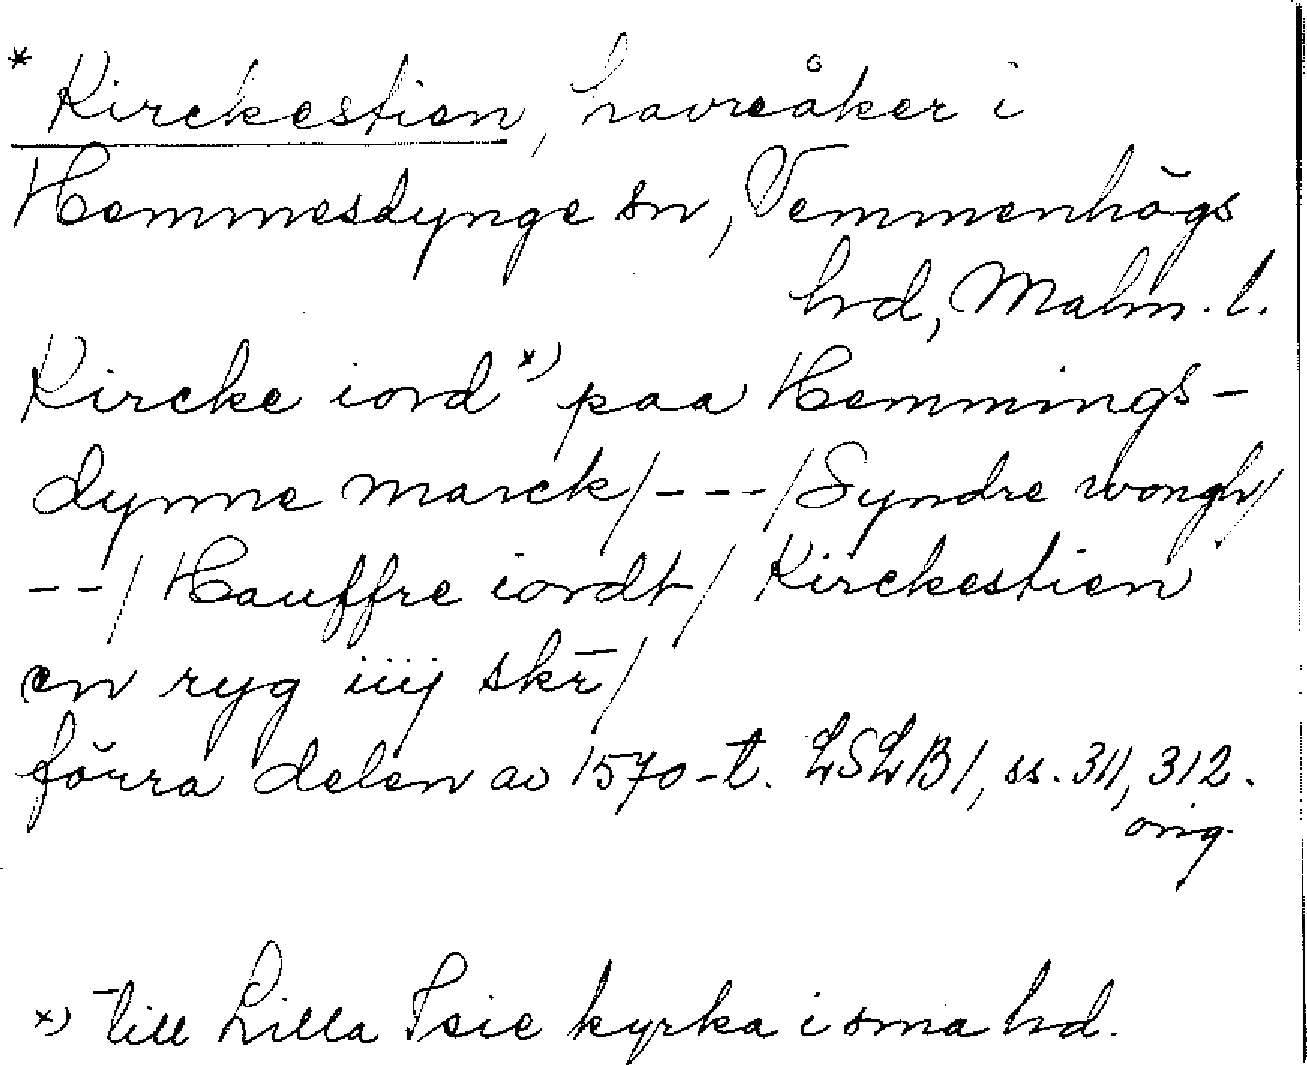 * Kirckestien, havreåker i
Hemmesdynge sn, Vemmenhögs
hd, Malm. l.
Kircke iord *) paa Hemmings-
dynne marck/---/Syndre wongh/
--/Hauffre iordt/Kirckestien
en ryg iiij skr̄/
förra delen av 1570-t. LSLB1, ss. 311, 312.
orig.
*) till Lilla Isie kyrka i sma hd.